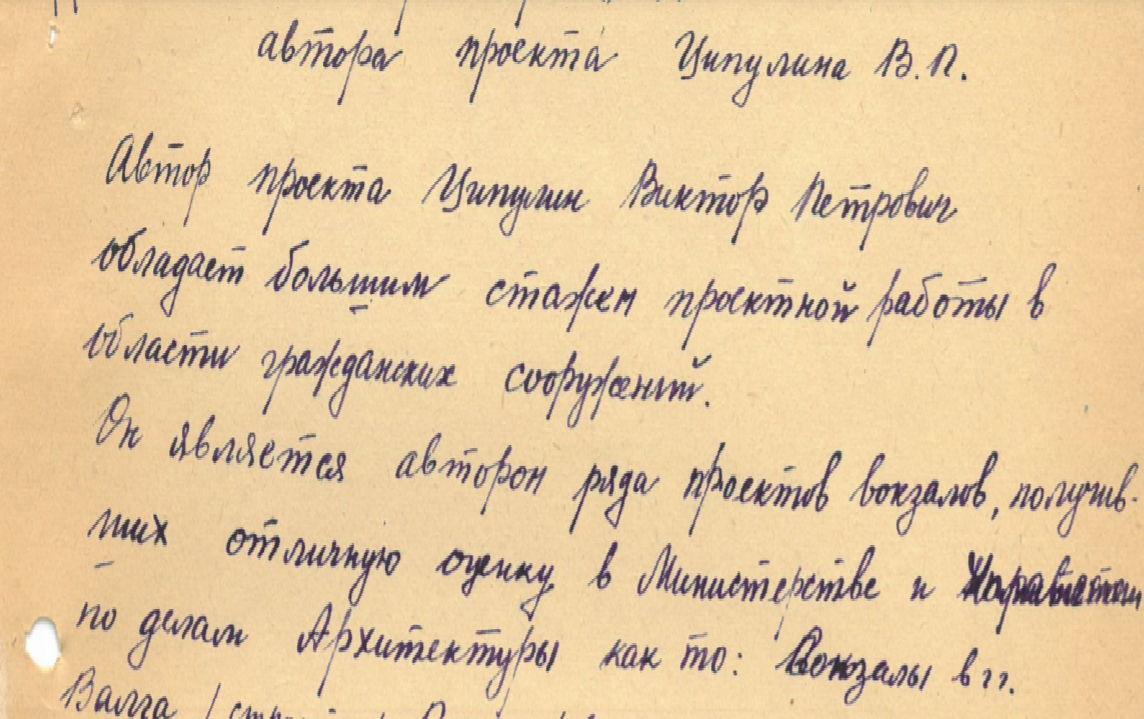 автора проекта Ципулина В.П.
Автор проекта Ципулин Виктор Петрович
обладает большим стажем проектной работы в
области гражданских сооружений.
Он является автором ряда проектов вокзалов, получив-
ших отличную оценку в Министерстве и
по делам Архитектуры как то: Вокзалы в гг.
Валга